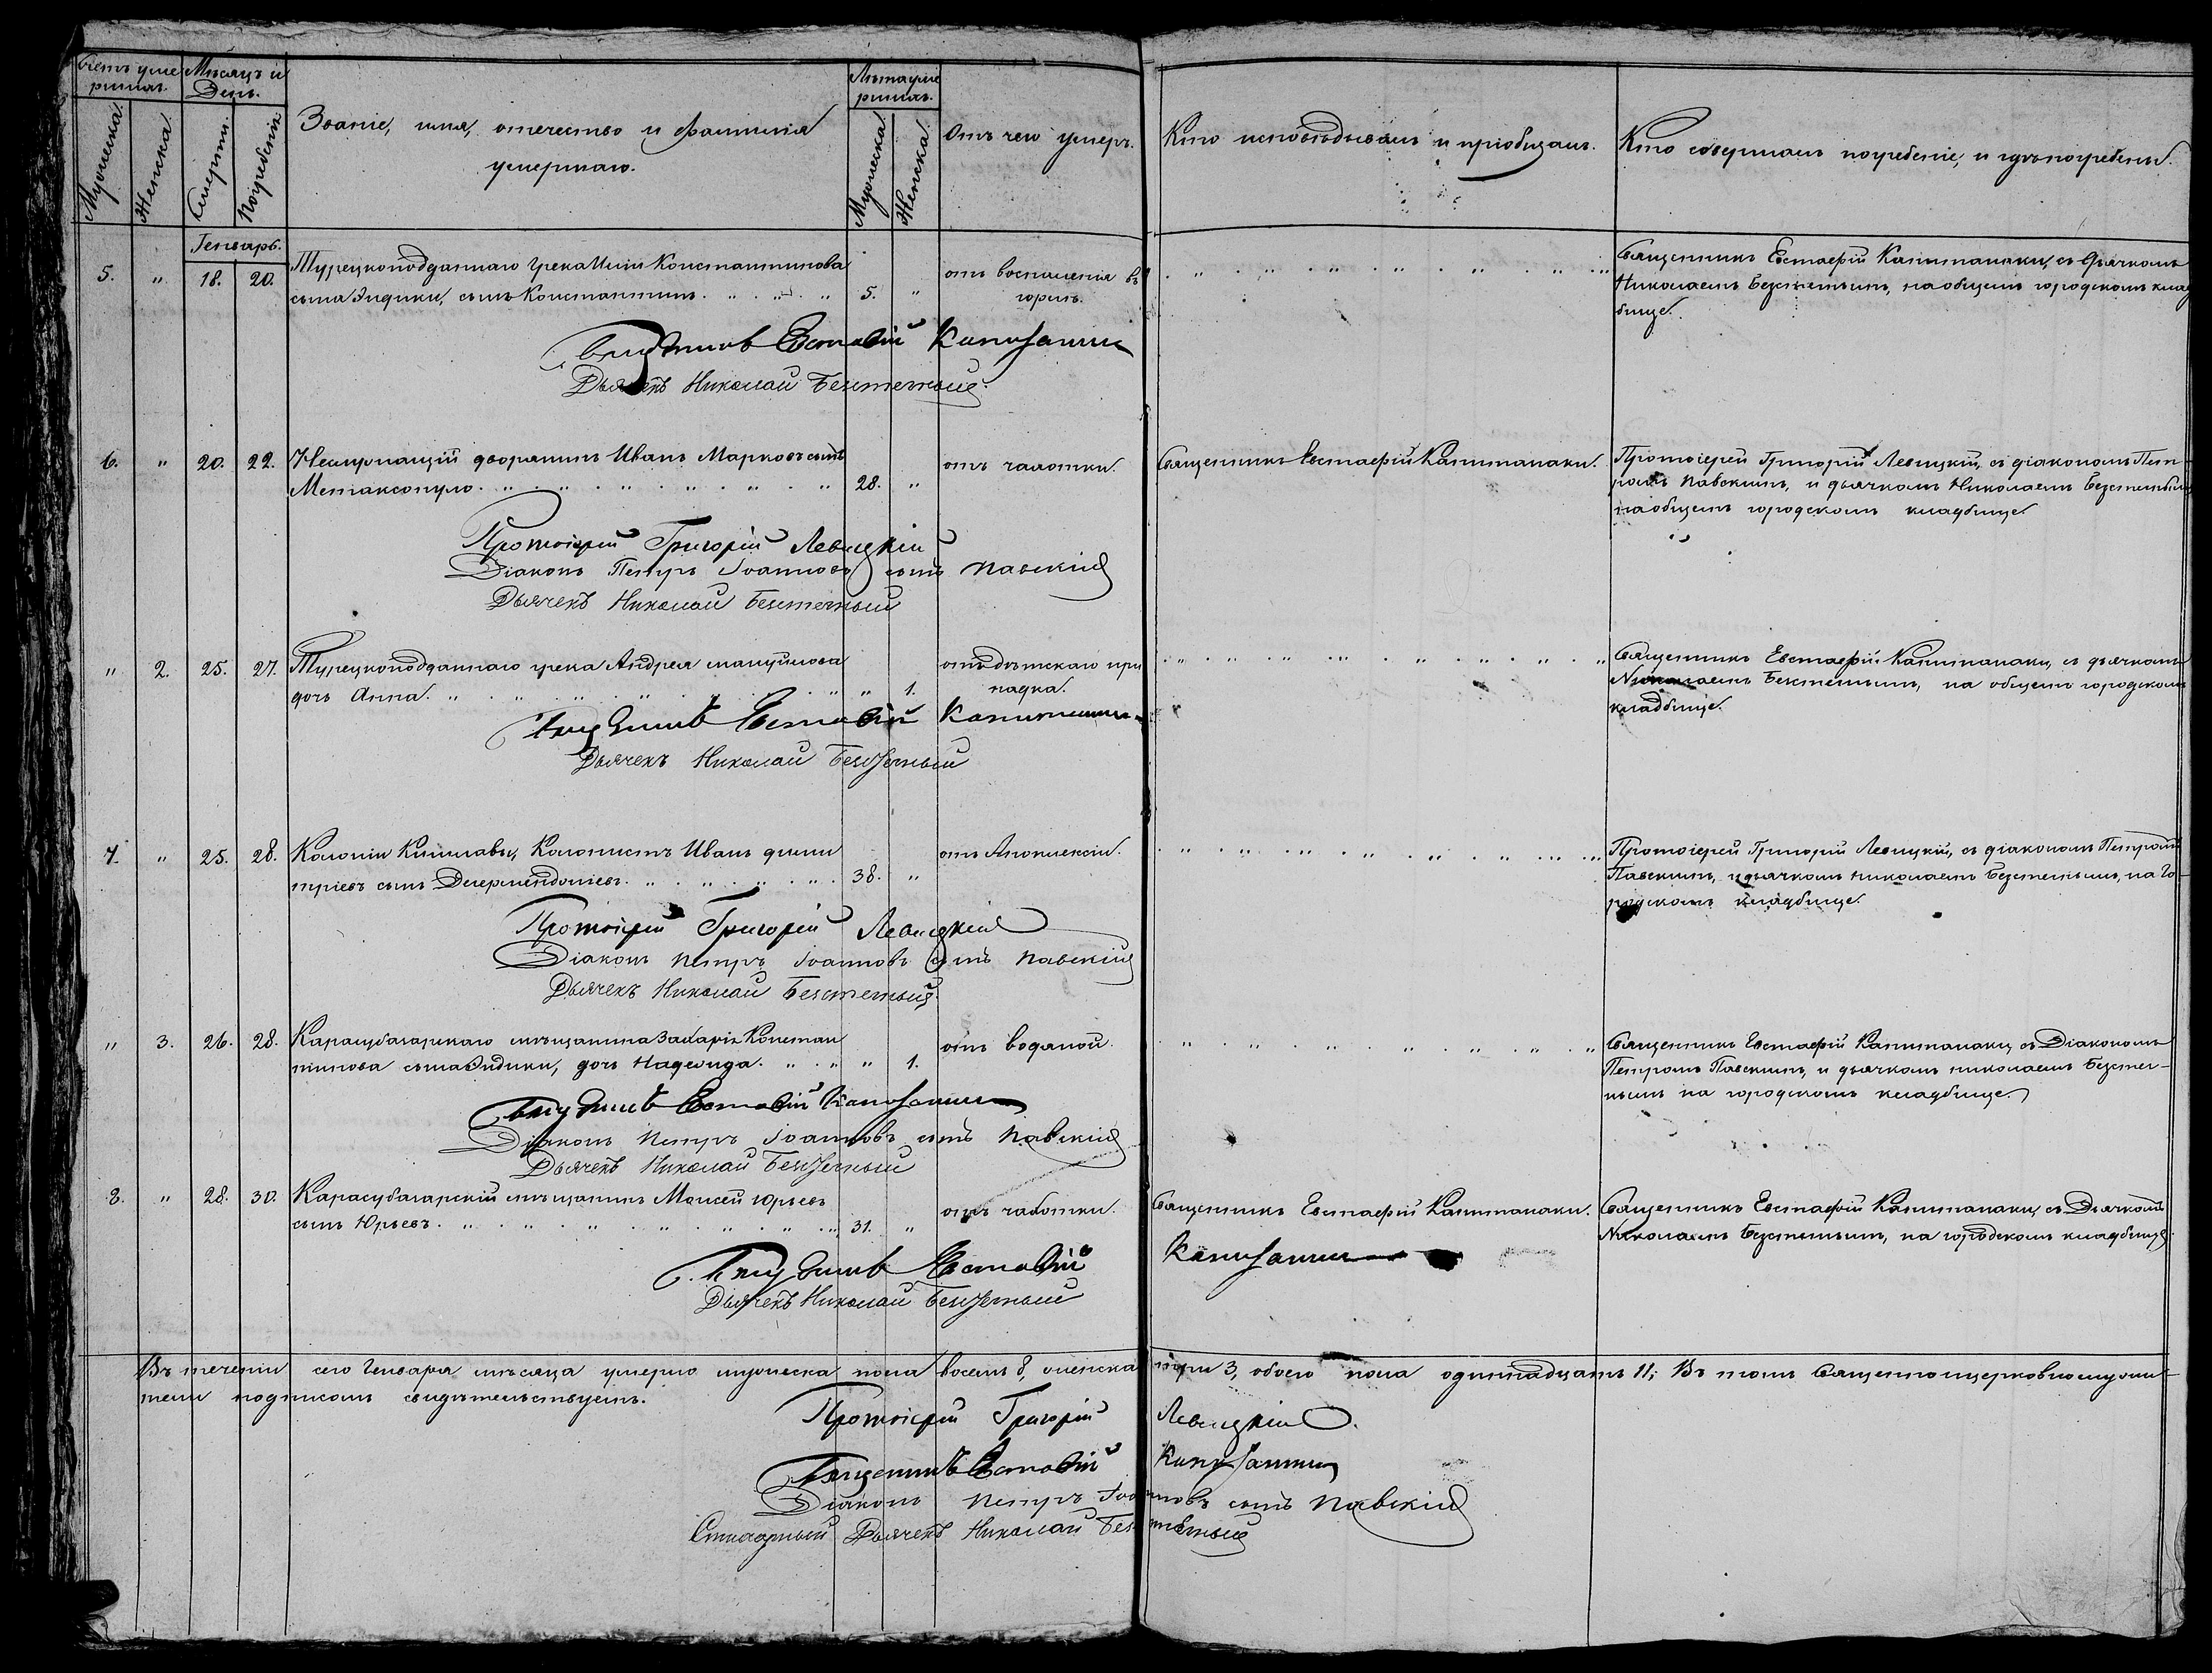 Счетъ умершихъ.
Мѣсяцъ и День.
Мужеска.
Женска.
Смерти.
Погребенія.
Званіе, имя, отечество и фамилія
умершаго.
Лѣта умершихъ.
Мужеска
Женска.
Отъ чего умеръ.
Кто исповѣдывалъ и пріобщалъ.
Кто совершалъ погребеніе, и гдѣ погребены.
Генварь.
5. " 18. 20. Турецкоподданнаго грека Константинова
сына Эндики, сынъ Константинъ. 5. "
отъ воспаленія въ
горлѣ.
Священникъ Евстафій Капитанаки, съ дьячкомъ
Николаемъ Безстетнымъ, на общемъ городскомъ клад
бище.
Священникъ Евстафій Капитанаки
Дьячекъ Николай Безстетный.
6. " 20. 22. Нежинскій дворянинъ Иванъ Марковъ сынъ
Метаксопуло. 28. "
отъ чахотки.
Священникъ Евстафій Капитанаки.
Протоіерей Григорій Левицкій, съ діакономъ Пет-
ромъ Павскимъ, и дьячкомъ Николаемъ Безстетнымъ
на общемъ городскомъ кладбище.
Протоіерей Григорій Левицкій
Діаконъ Петръ Іоанновъ сынъ Павскій
Дьячекъ Николай Безстетный
" 2. 25. 27. Турецкоподданнаго грека Андрея мануйлова
дочь Анна. " 1.
отъ дѣтскаго при
падка.
Священникъ Евстафій Капитанаки, съ дьячкомъ
Николаемъ Безстетнымъ, на общемъ городскомъ
кладбище.
Священникъ Евстафій Капитанаки
Дьячекъ Николай Безстетный
7. " 25. 28. Колоніи Кишлавы, Колонистъ Иванъ дими
тріевъ сынъ Дегерменджіевъ. 38. "
отъ Апоплексіи.
Протоіерей Григорій Левицкій, съ діакономъ Петромъ
Павскимъ, и дьячкомъ николаемъ Безстетнымъ, на Го-
родскомъ кладбище.
Протоіерей Григорій Левицкій
Діаконъ Петръ Іоанновъ сынъ Павскій
Дьячекъ Николай Безстетный.
" 3. 26. 28. Карасубазарскаго мѣщанина Захарія Констан
тинова сына Эндики, дочь Надежда. " 1.
отъ водяной.
Священникъ Евстафій Капитанаки, съ Діакономъ
Петромъ Павскимъ, и дьячкомъ николаемъ Безстет-
нымъ на городскомъ кладбище.
Священникъ Евстафій Капитанаки
Діаконъ Петръ Іоанновъ сынъ Павскій
Дьячекъ Николай Безстетный
8. " 28. 30. Карасубазарскій мѣщанинъ Моисей Юрьевъ
сынъ Юрьевъ. 31. "
отъ чахотки.
Священникъ Евстафій Капитанаки.
Священникъ Евстафій Капитанаки, съ Дьячкомъ
Николаемъ Безстетнымъ, на городскомъ кладбище.
Священникъ Евстафій Капитанаки
Дьячекъ Николай Безстетный
Въ теченіи сего Генваря мѣсяца умерло мужеска пола восемь 8, женска три 3, обоего пола одиннадцать 11; Въ томъ Священноцерковнослужи-
тели подписомъ свидѣтельствуемъ.
Протоіерей Григорій Левицкій.
Священникъ Евстафій Капитанаки
Діаконъ Петръ Іоанновъ сынъ Павскій
Стихарный Дьячекъ Николай Безстетный